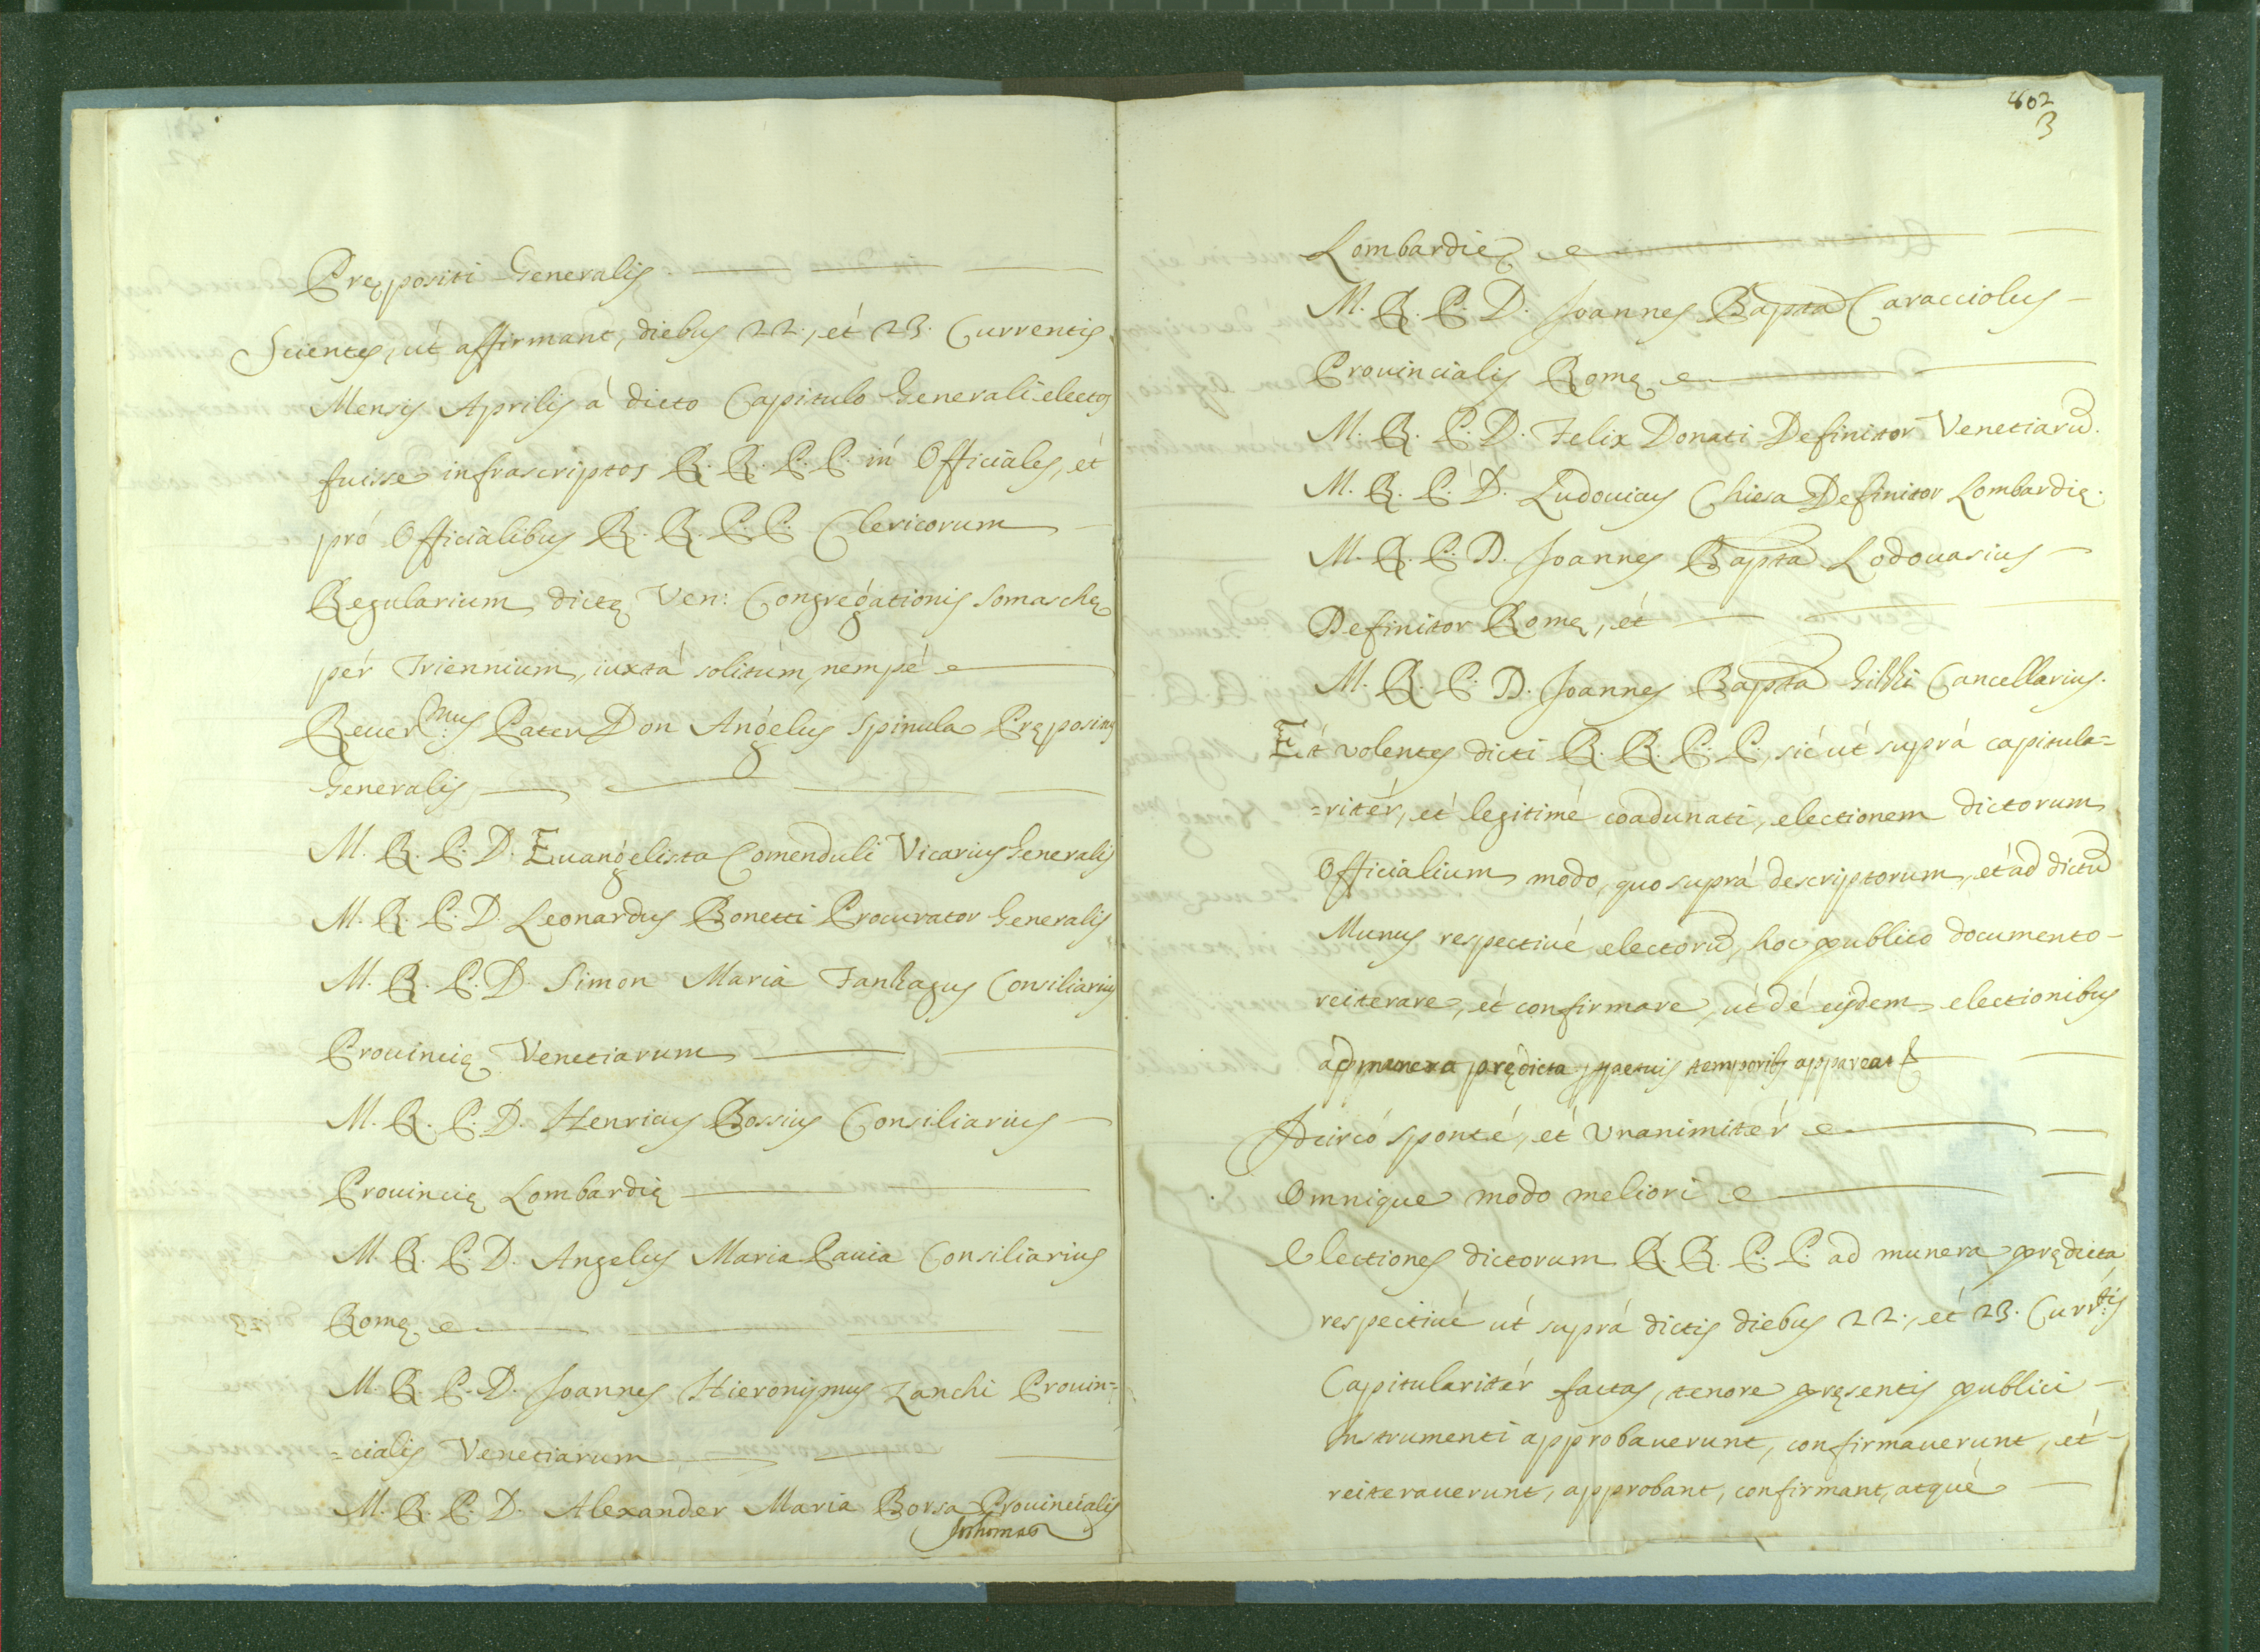 Prępositi Generalis
Scientes, ut affirmant, diebus 22., et 23. Currentis
Mensis Aprilis á dicto Capitulo Generali electos
fuisse infrascriptos R. R. P. P. in Officiales, et
pró Officialibus R. R. P. P. Clericorum
Regularium dictę Ven: Congregationis Somaschę
pér Triennium, iuxtá solitum, nempé
Reuer.mus Pater Don Angelus Spinula Prępositus
Generalis
M. R. P. D. Euangelista Comenduli Vicarius Generalis
M. R. P. D. Leonardus Bonetti Procurator Generalis
M. R. P. D. Simon Maria Consiliarius
Prouincię Venetiarum
M. R. P. D. Henricus Bossius Consiliarius
Prouincię Lombardię
M. R. P. D. Angelus Maria Pauia Consiliarius
Romę
M. R. P. D. Joannes Hieronymus Zanchi Prouin=
=cialis Venetiarum
M. R. P. D. Alexander Maria Borsa Prouincialis
402
3
Lombardię
M. R. P. D. Joannes Bapta Caracciolus
Prouincialis Romę
M. R. P. D. Felix Donati Definitor Venetiarũ.
M. R. P. D. Ludouicus Chiesa Definitor Lombardię.
M. R. P. D. Joannes Bapta Lodouasius
Definitor Romę, et
M. R. P. D. Joannes Bapta Cancellarius.
Et volentes dicti R. R. P. P., sic ut suprá capitula=
=ritér, et legitimé coadunati, electionem dictorum
Officialium modo, quo suprá descriptorum, et ad dictũ
Munus respectiué electorũ, hoc publico documento
reiterare, et confirmare, ut dé eisdem electionibus
ad munera prędicta temporibus appareat
Idcircó sponté, et Vnanimitér
Omnique modo meliori
Electiones dictorum R. R. P. P. ad munera prędicta
respectiué ut suprá dictis diebus 22., et 23. Curr.tis
Capitularitér factas, tenore pręsentis publici
Instrumenti approbauerunt, confirmauerunt, et
reiterauerunt, approbant, confirmant, atqué